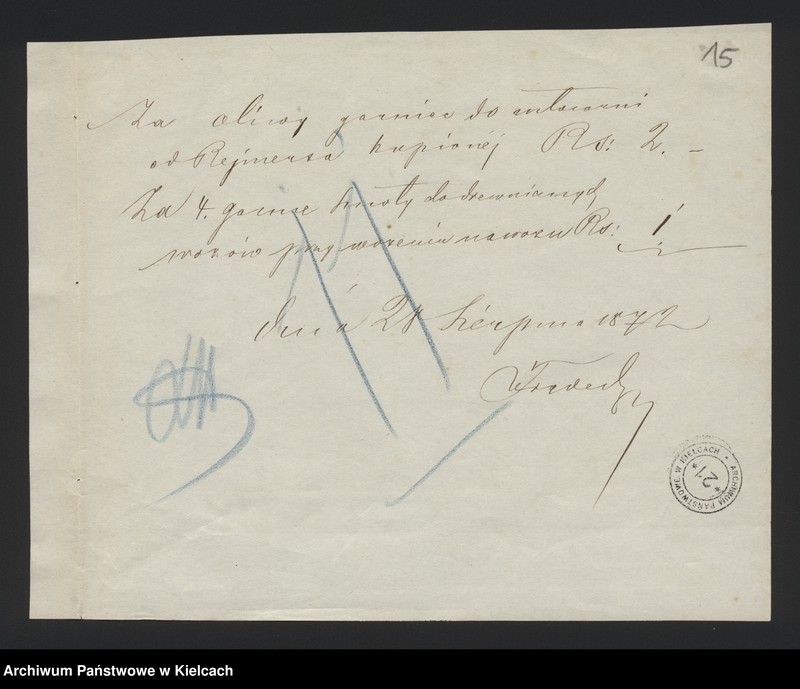 15
Za oliwy garniec do młocarni
od Rejmersa kupionéj Rs: 2. –
Za 4. garnce smoły do drewnianych
wozów przy wożeniu nawozu Rs: 1
dnia 28 Sierpnia 1872
ARCHIWUM PAŃSTWOWE W KIELCACH
* 21 *
Archiwum Państwowe w Kielcach